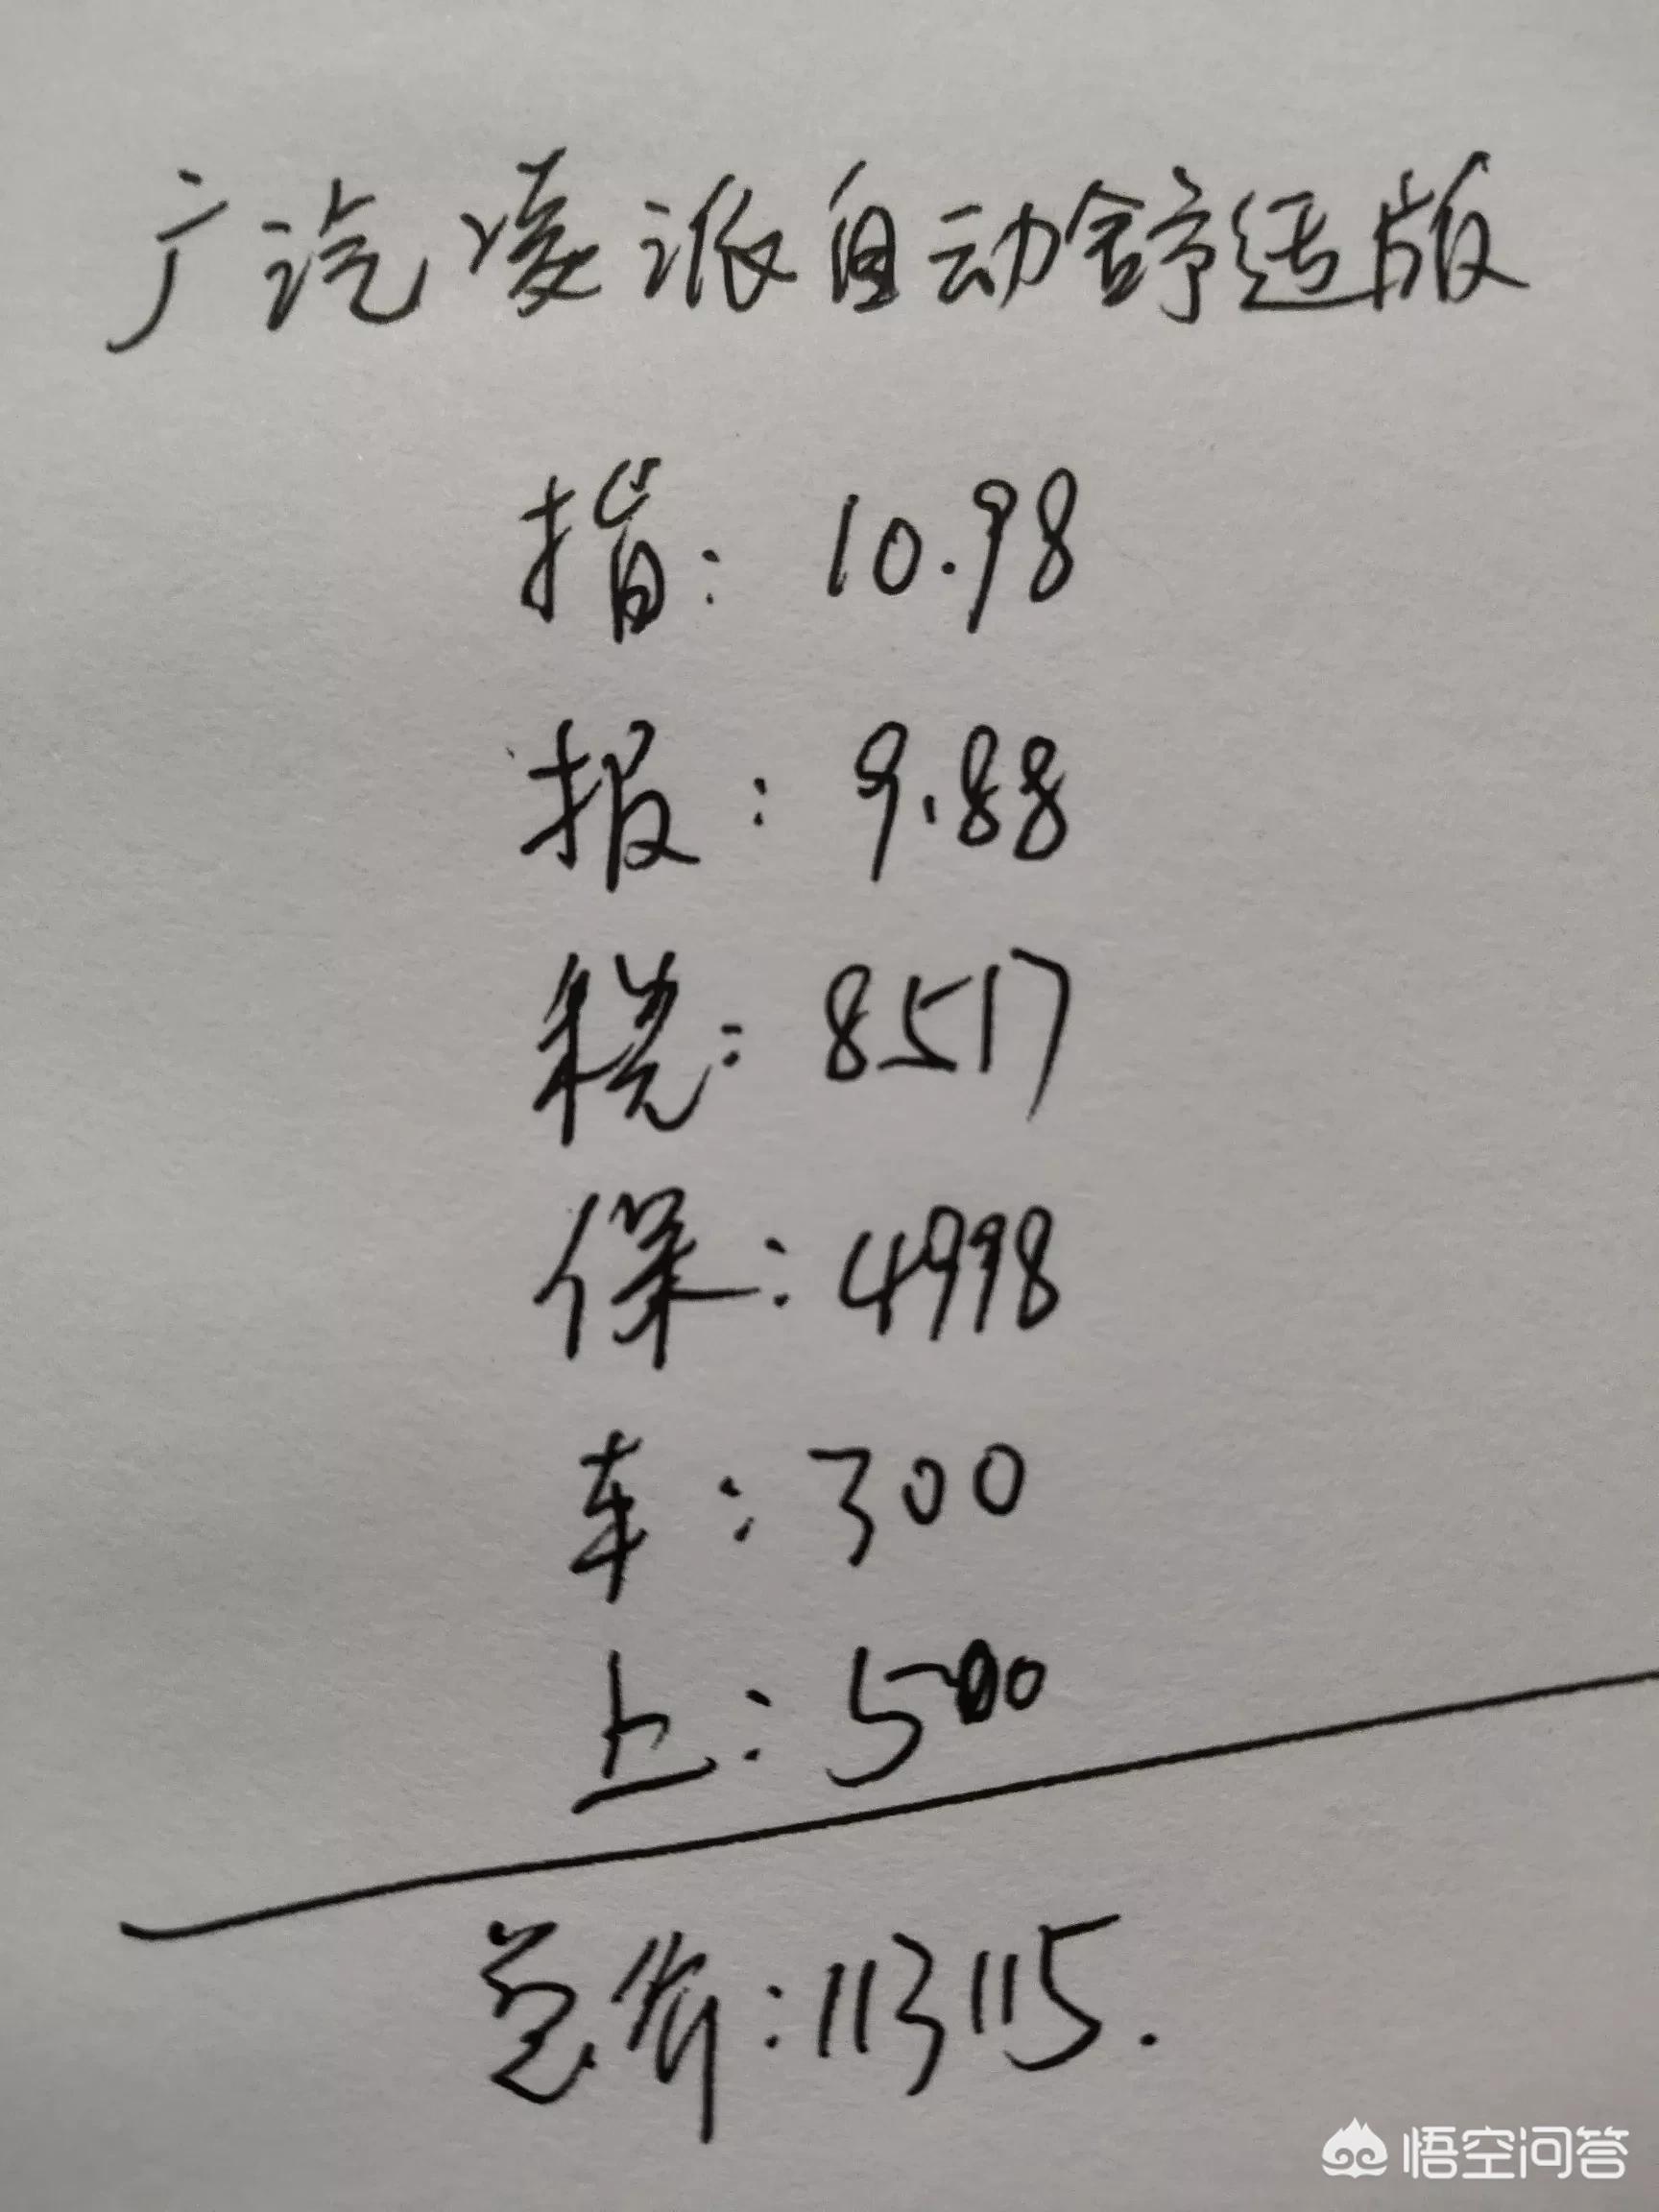 广汽凌派自动舒适版
指：10.98
报：9.88
税：8517
保：4998
车：300
上：500
总价：113115.
悟空问答